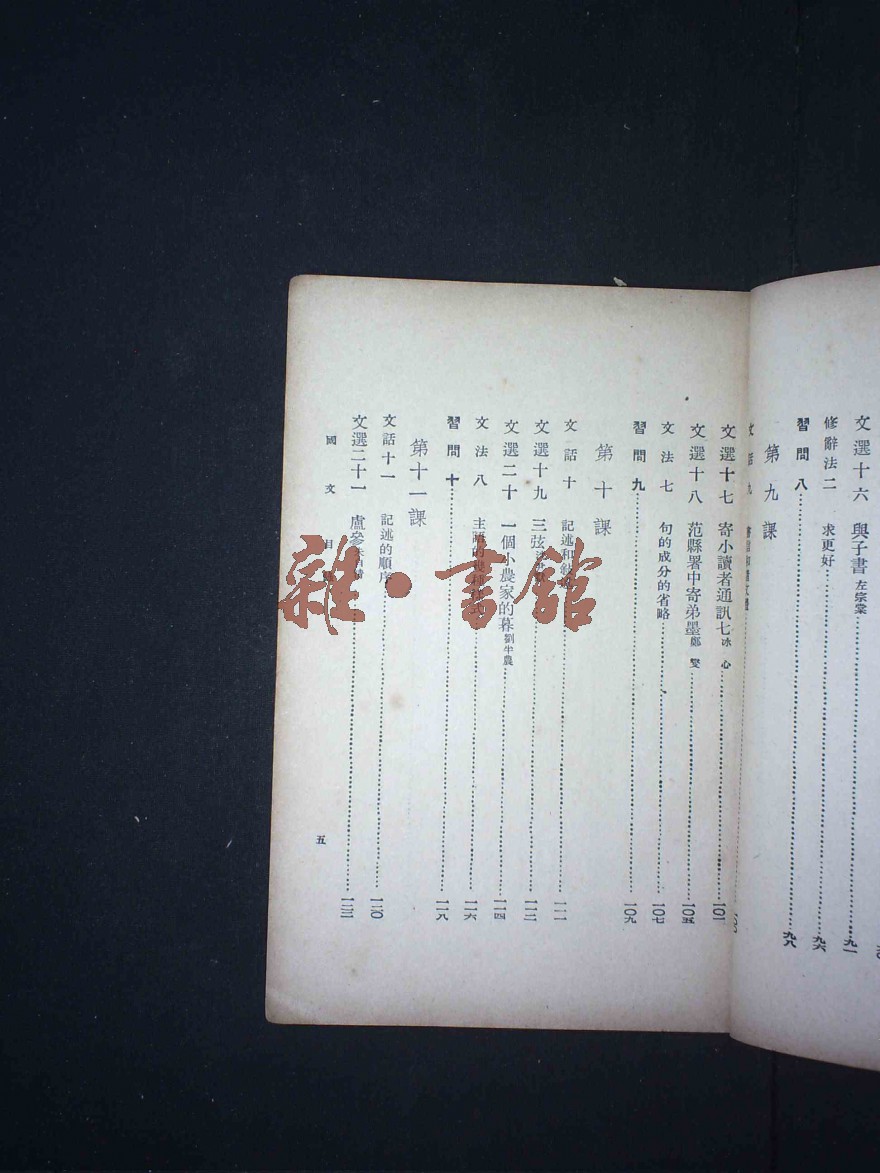 文選十六 與子書 左宗棠 九一
修辭法二 求更好 九六
習問八 九八
第九課
文話九
文選十七 寄小讀者通訊七 冰心 一〇一
文選十八 范縣署中寄弟墨 鄭燮 一〇五
文法七 句的成分的省略 一〇七
習問九 一〇九
第十課
文話十 記述和敍 一一一
文選十九 三弦 一一二
文選二十 一個小農家的暮 劉半農 一一四
文法八 主語的 一一六
習問十 一一八
第十一課
文話十一 記述的順序 一二〇
文選二十一 盧參 一二二
國文 目 五
雜·書館